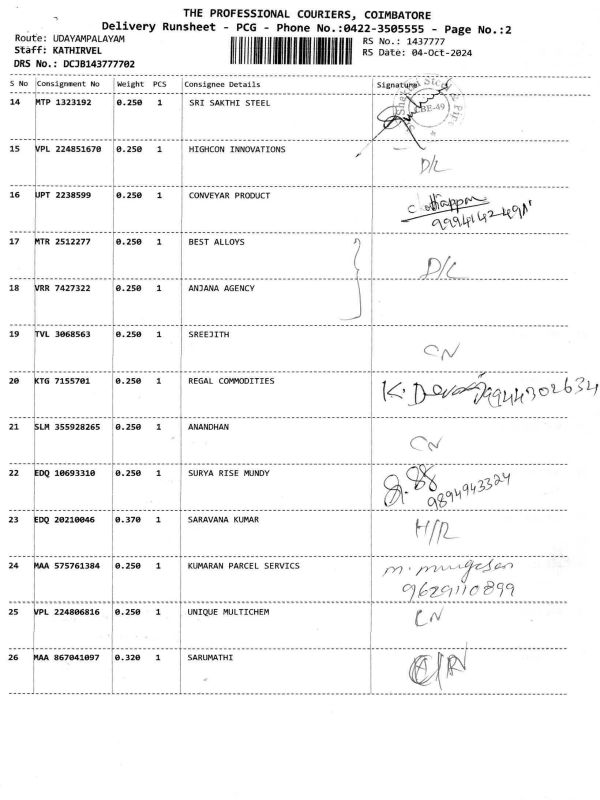 THE PROFESSIONAL COURIERS, COIMBATORE
Delivery Runsheet - PCG - Phone No.:0422-3505555 - Page No.:2
Route: UDAYAMPALAYAM
Staff: KATHIRVEL
DRS No.: DCJB143777702
RS No.: 1437777
RS Date: 04-Oct-2024
S No Consignment No Weight PCS Consignee Details Signature
14 MTP 1323192 0.250 1 SRI SAKTHI STEEL
CBE-49
15 VPL 224851670 0.250 1 HIGHCON INNOVATIONS
D/L
16 UPT 2238599 0.250 1 CONVEYAR PRODUCT
17 MTR 2512277 0.250 1 BEST ALLOYS
D/L
18 VRR 7427322 0.250 1 ANJANA AGENCY
19 TVL 3068563 0.250 1 SREEJITH
CN
20 KTG 7155701 0.250 1 REGAL COMMODITIES
K. 9944302634
21 SLM 355928265 0.250 1 ANANDHAN
CN
22 EDQ 10693310 0.250 1 SURYA RISE MUNDY
9894943324
23 EDQ 20210046 0.370 1 SARAVANA KUMAR
H/R
24 MAA 575761384 0.250 1 KUMARAN PARCEL SERVICS
m. murgesan
9629110899
25 VPL 224806816 0.250 1 UNIQUE MULTICHEM
CN
26 MAA 867041097 0.320 1 SARUMATHI